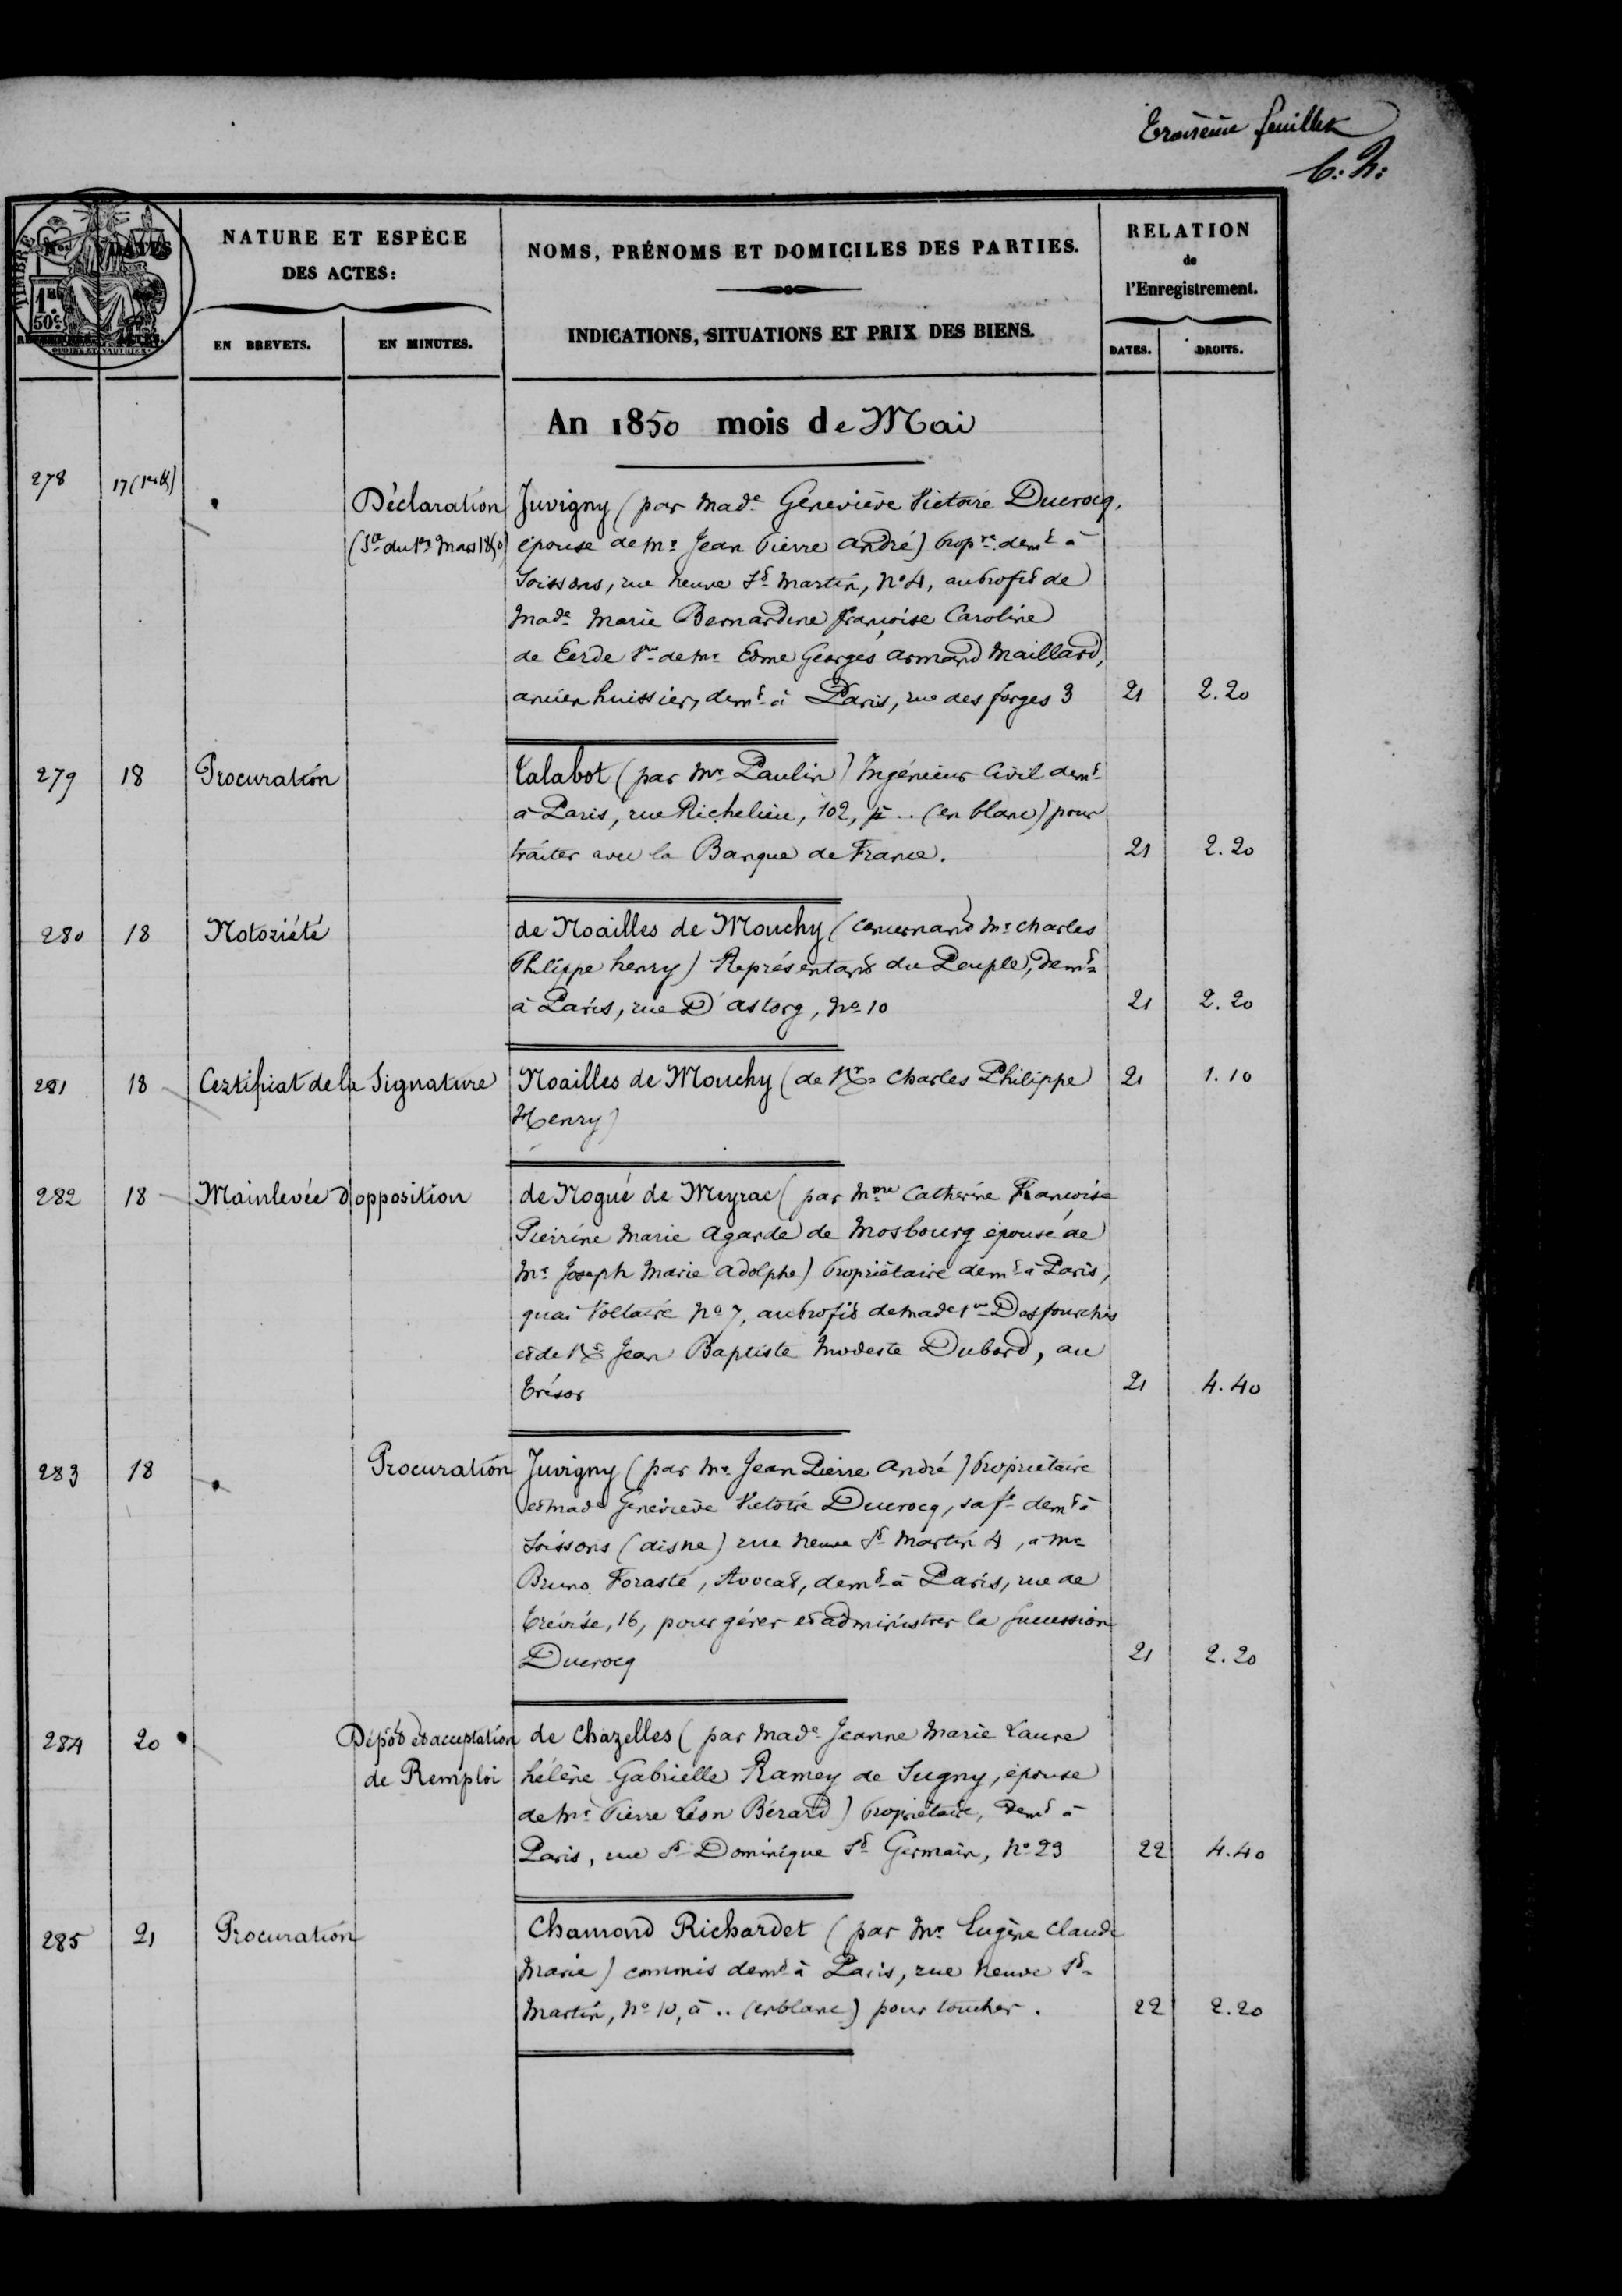 Troisième feuillet
C. h:
TIMBRE
Nos
DATES
1f
50c
NATURE ET ESPÈCE
DES ACTES:
EN BREVETS.
EN MINUTES.
NOMS, PRÉNOMS ET DOMICILES DES PARTIES.
INDICATIONS, SITUATIONS ET PRIX DES BIENS.
RELATION
de
l'Enregistrement.
DATES.
DROITS.
An 1850 mois de Mai
278 17 Déclaration Juvigny (par Made Geneviève Victoire Ducrocq,
du 1er Mars 1850) épouse de Mr Jean Pierre André) Propre demt à
Soissons, rue neuve St Martin, No 4, au profit de
Made Marie Bernardine françoise Caroline
de Eerde Ve de Mr Edme Georges Armand Maillard,
ancien huissier, demt à Paris, rue des forges 3 21 2.20
279 18 Procuration Talabot (par Mr Paulin) Ingénieur Civil demt
à Paris, rue Richelieu, 102, à .. (en blanc) pour
traiter avec la Banque de France. 21 2.20
280 18 Notoriété de Noailles de Mouchy (concernant Mr Charles
Philippe henry) Représentant du Peuple, demt
à Paris, rue D'astorg, No 10 21 2.20
281 18 Certificat de la Signature Noailles de Mouchy (de Mr Charles Philippe 21 1.10
Henry)
282 18 Mainlevée d'opposition de Nogué de Meyrac (par Mme Catherine Françoise
Pierrine Marie Agarde de Mosbourg épouse de
Mr Joseph Marie Adolphe) Propriétaire demt à Paris,
quai Voltaire No 7, au profit de made Ve Desfourchis
et de Mr Jean Baptiste Modeste Dubord, au
Trésor 21 4.40
283 18 Procuration Juvigny (par Mr Jean Pierre André) Propriétaire
et made Geneviève Victoire Ducrocq, sa fe demt à
Soissons (aisne) rue neuve St Martin 4, à Mr
Bruno Forasté, Avocat, demt à Paris, rue de
Trévise, 16, pour gérer et administrer la succession
Ducrocq 21 2.20
284 20 Dépôt et acceptation de Chazelles (par Made Jeanne Marie Laure
de Remploi hélène Gabrielle Ramey de Sugny, épouse
de Mr Pierre Léon Bérard) Propriétaire, demt à
Paris, rue St Dominique St Germain, No 23 22 4.40
285 21 Procuration Chamond Richardet (par Mr Eugène Claude
Marie) commis demt à Paris, rue neuve St
Martin, No 10, à .. (en blanc) pour toucher. 22 2.20